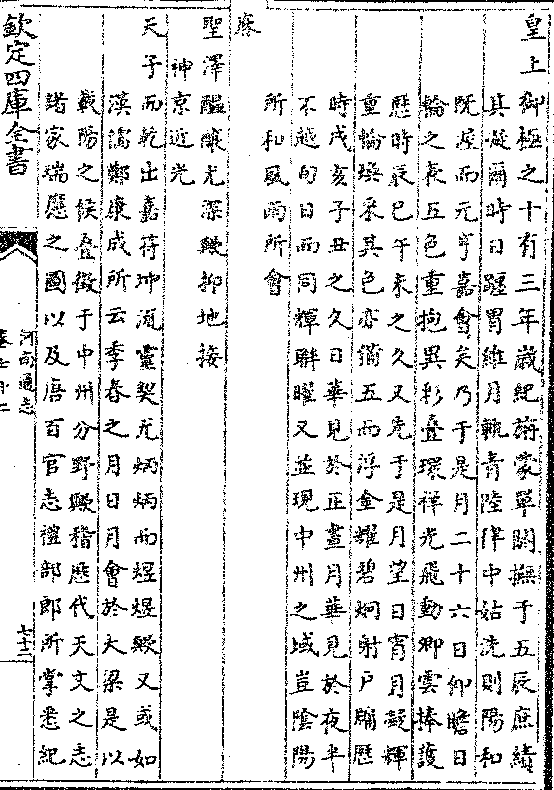 皇上御極之十有三年歲紀旃蒙單閼撫于五辰庶績
其凝爾時日躔胃維月軌青陸律中姑洗則陽和
既渥而元亨嘉會矣乃于是月二十六日仰瞻日
輪之表五色重抱異彩疊環祥光飛動卿雲捧護
歷時辰巳午未之久又先于是月望日宵月凝輝
重輪瑛采其色亦備五而浮金耀碧炯射戶牖歷
時戌亥子丑之久日華見於正晝月華見於夜半
不越旬日而同輝聯曜又並現中州之域豈陰陽
所和風雨所會
聖澤醲釀尤深歟抑地接
神京近光
天子而乾出嘉符坤流靈契尤炳炳而煜煜歟又或如
漢儒鄭康成所云季春之月日月會於大梁是以
載陽之候叠徵于中州分野歟稽歷代天文之志
諸家瑞應之圖以及唐百官志禮部郎所掌悉紀
欽定四庫全書
河南通志
卷七十二
七十二